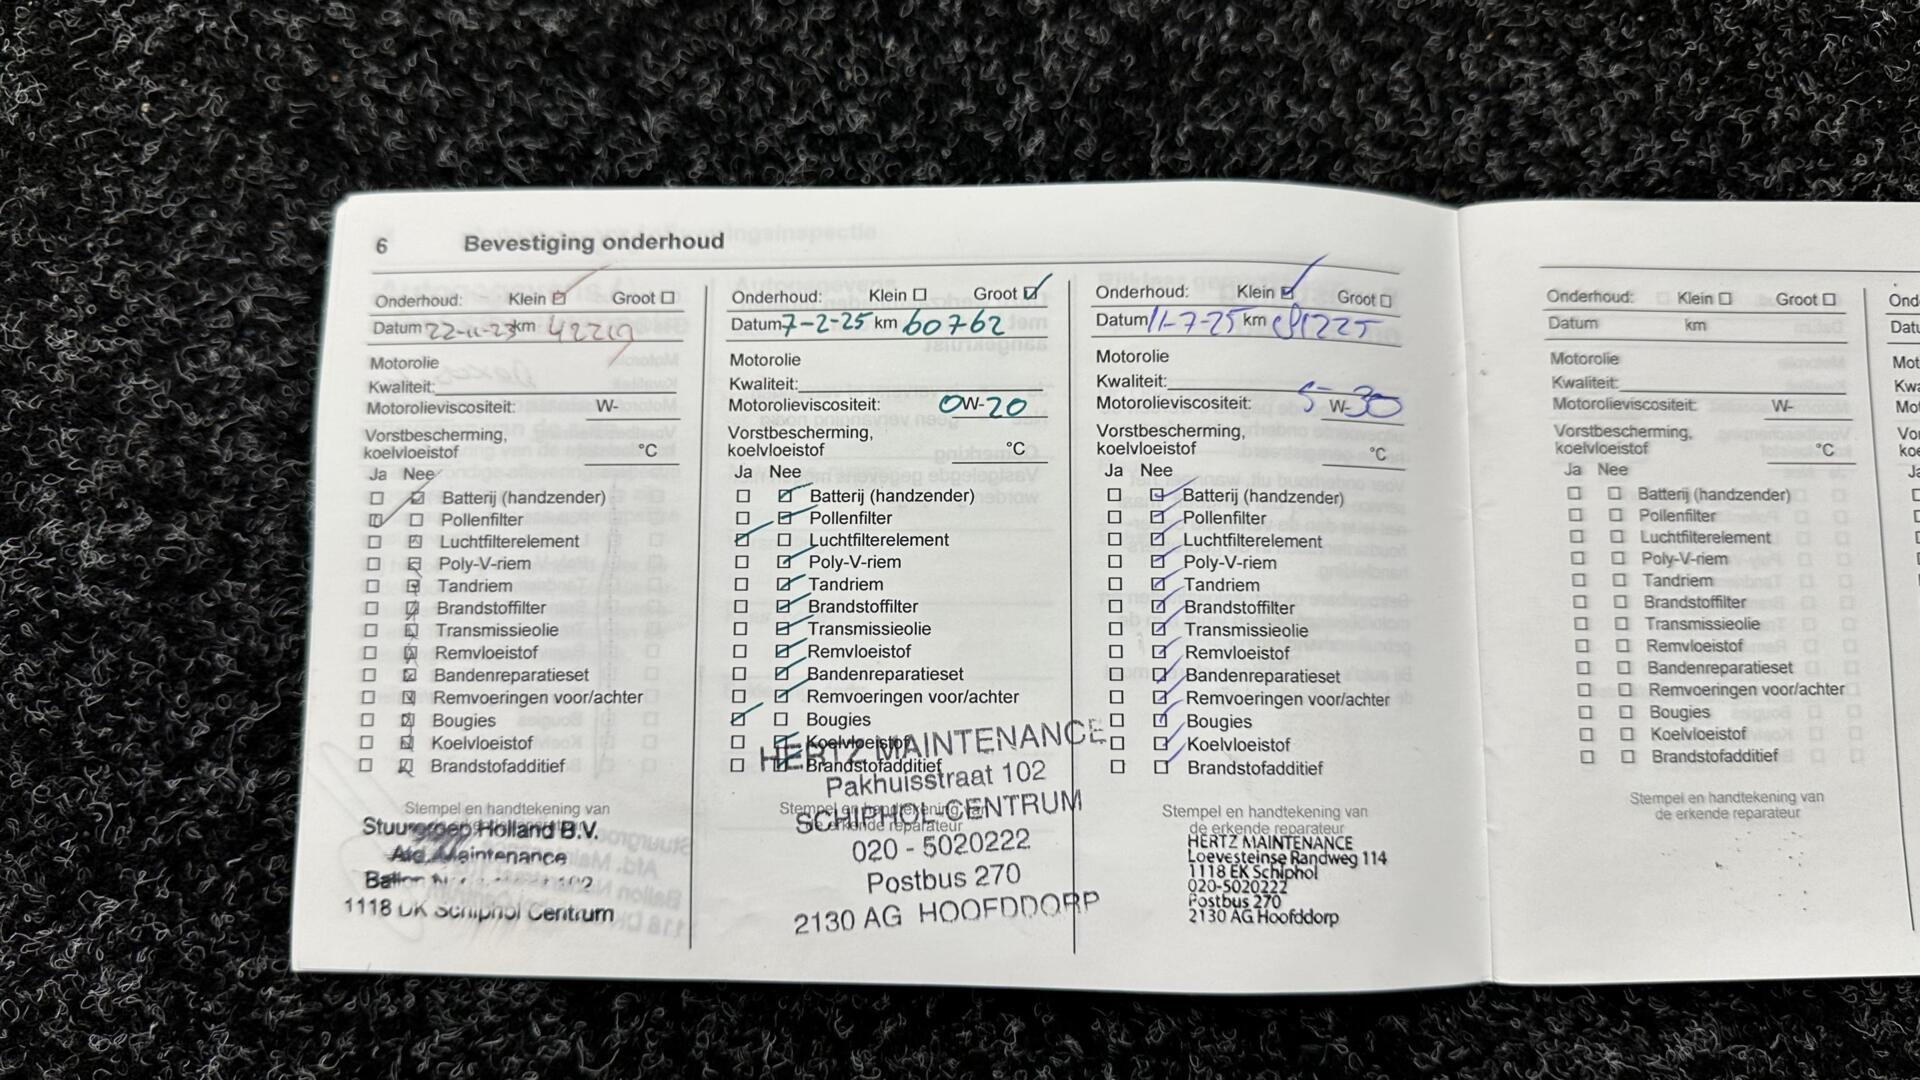 6 Bevestiging onderhoud
Onderhoud: Klein Groot
Datum 22-11-23 km 42219
Motorolie
Kwaliteit:
Motorolieviscositeit: W-
Vorstbescherming,
koelvloeistof °C
Ja Nee
Batterij (handzender)
Pollenfilter
Luchtfilterelement
Poly-V-riem
Tandriem
Brandstoffilter
Transmissieolie
Remvloeistof
Bandenreparatieset
Remvoeringen voor/achter
Bougies
Koelvloeistof
Brandstofadditief
Stempel en handtekening van
Stuurgroep Holland B.V.
Afd. Maintenance
1118 DK Schiphol Centrum
Onderhoud: Klein Groot
Datum 7-2-25 km 60762
Motorolie
Kwaliteit:
Motorolieviscositeit: 0W-20
Vorstbescherming,
koelvloeistof °C
Ja Nee
Batterij (handzender)
Pollenfilter
Luchtfilterelement
Poly-V-riem
Tandriem
Brandstoffilter
Transmissieolie
Remvloeistof
Bandenreparatieset
Remvoeringen voor/achter
Bougies
Koelvloeistof
Brandstofadditief
Stempel en handtekening van
de erkende reparateur
HERTZ MAINTENANCE
Pakhuisstraat 102
SCHIPHOL-CENTRUM
020 - 5020222
Postbus 270
2130 AG HOOFDDORP
Onderhoud: Klein Groot
Datum 11-7-25 km
Motorolie
Kwaliteit:
Motorolieviscositeit: 5 W-30
Vorstbescherming,
koelvloeistof °C
Ja Nee
Batterij (handzender)
Pollenfilter
Luchtfilterelement
Poly-V-riem
Tandriem
Brandstoffilter
Transmissieolie
Remvloeistof
Bandenreparatieset
Remvoeringen voor/achter
Bougies
Koelvloeistof
Brandstofadditief
Stempel en handtekening van
de erkende reparateur
HERTZ MAINTENANCE
Loevesteinse Randweg 114
1118 EK Schiphol
020-5020222
Postbus 270
2130 AG Hoofddorp
Onderhoud: Klein Groot
Datum km
Motorolie
Kwaliteit:
Motorolieviscositeit: W-
Vorstbescherming,
koelvloeistof °C
Ja Nee
Batterij (handzender)
Pollenfilter
Luchtfilterelement
Poly-V-riem
Tandriem
Brandstoffilter
Transmissieolie
Remvloeistof
Bandenreparatieset
Remvoeringen voor/achter
Bougies
Koelvloeistof
Brandstofadditief
Stempel en handtekening van
de erkende reparateur